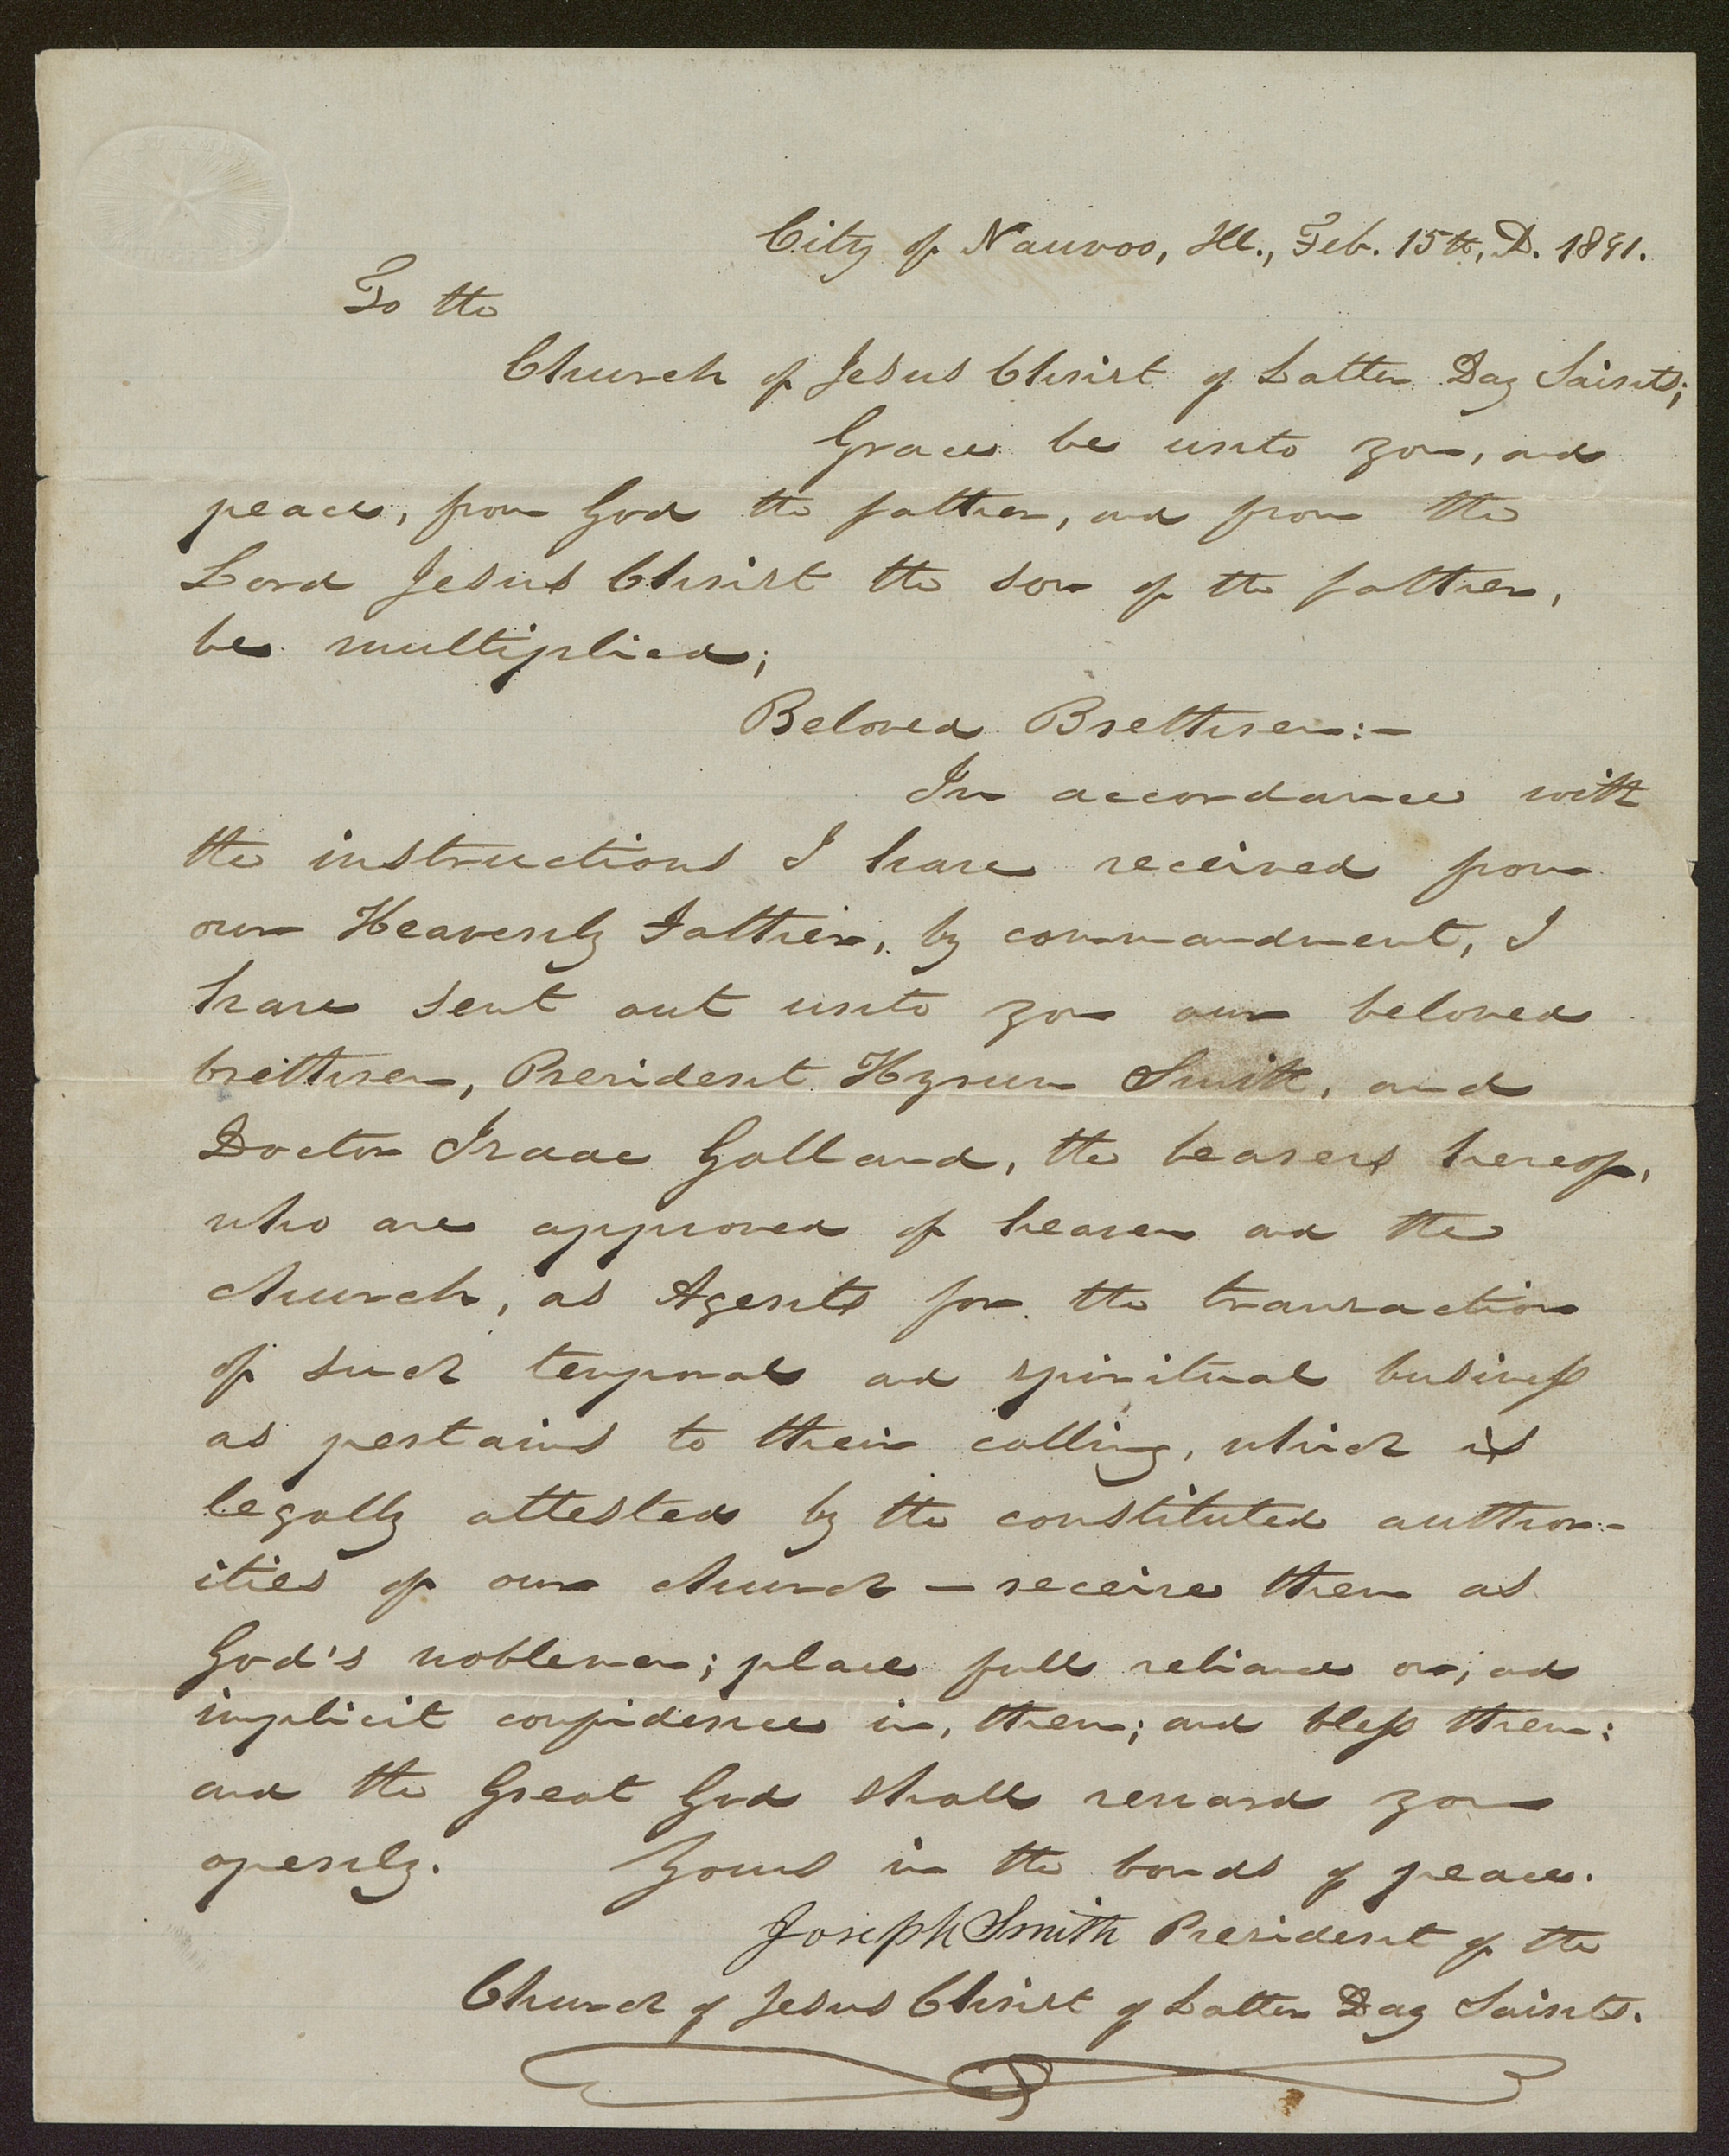 City of Nauvoo, Ill., Feb. 15th, D. 1841.
To the
Church of Jesus Christ of Latter Day Saints;
Grace be unto you, and
peace, from God the father, and from the
Lord Jesus Christ the son of the father,
be multiplied;
Beloved Brethren:—
In accordance with
the instructions I have received from
our Heavenly Father, by commandment, I
have sent out unto you our beloved
brethren, President Hyrum Smith, and
Doctor Isaac Galland, the bearers hereof,
who are approved of heaven and the
church, as Agents for the transaction
of such temporal and spiritual business
as pertains to their calling, which is
legally attested by the constituted author-
ities of our church — receive them as
God's noblemen; place full reliance on, and
implicit confidence in, them; and bless them:
and the Great God shall reward you
openly. Yours in the bonds of peace.
Joseph Smith President of the
Church of Jesus Christ of Latter Day Saints.